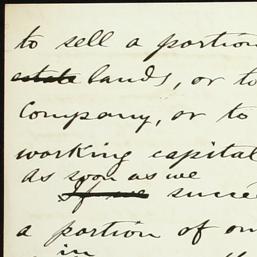 to sell a portion
estate lands, or to
Company, or to
working capital
as soon as we
If we succe
a portion of ou
in